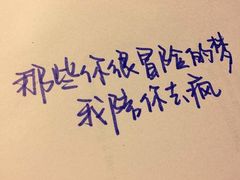 那些你很冒险的梦
我陪你去疯